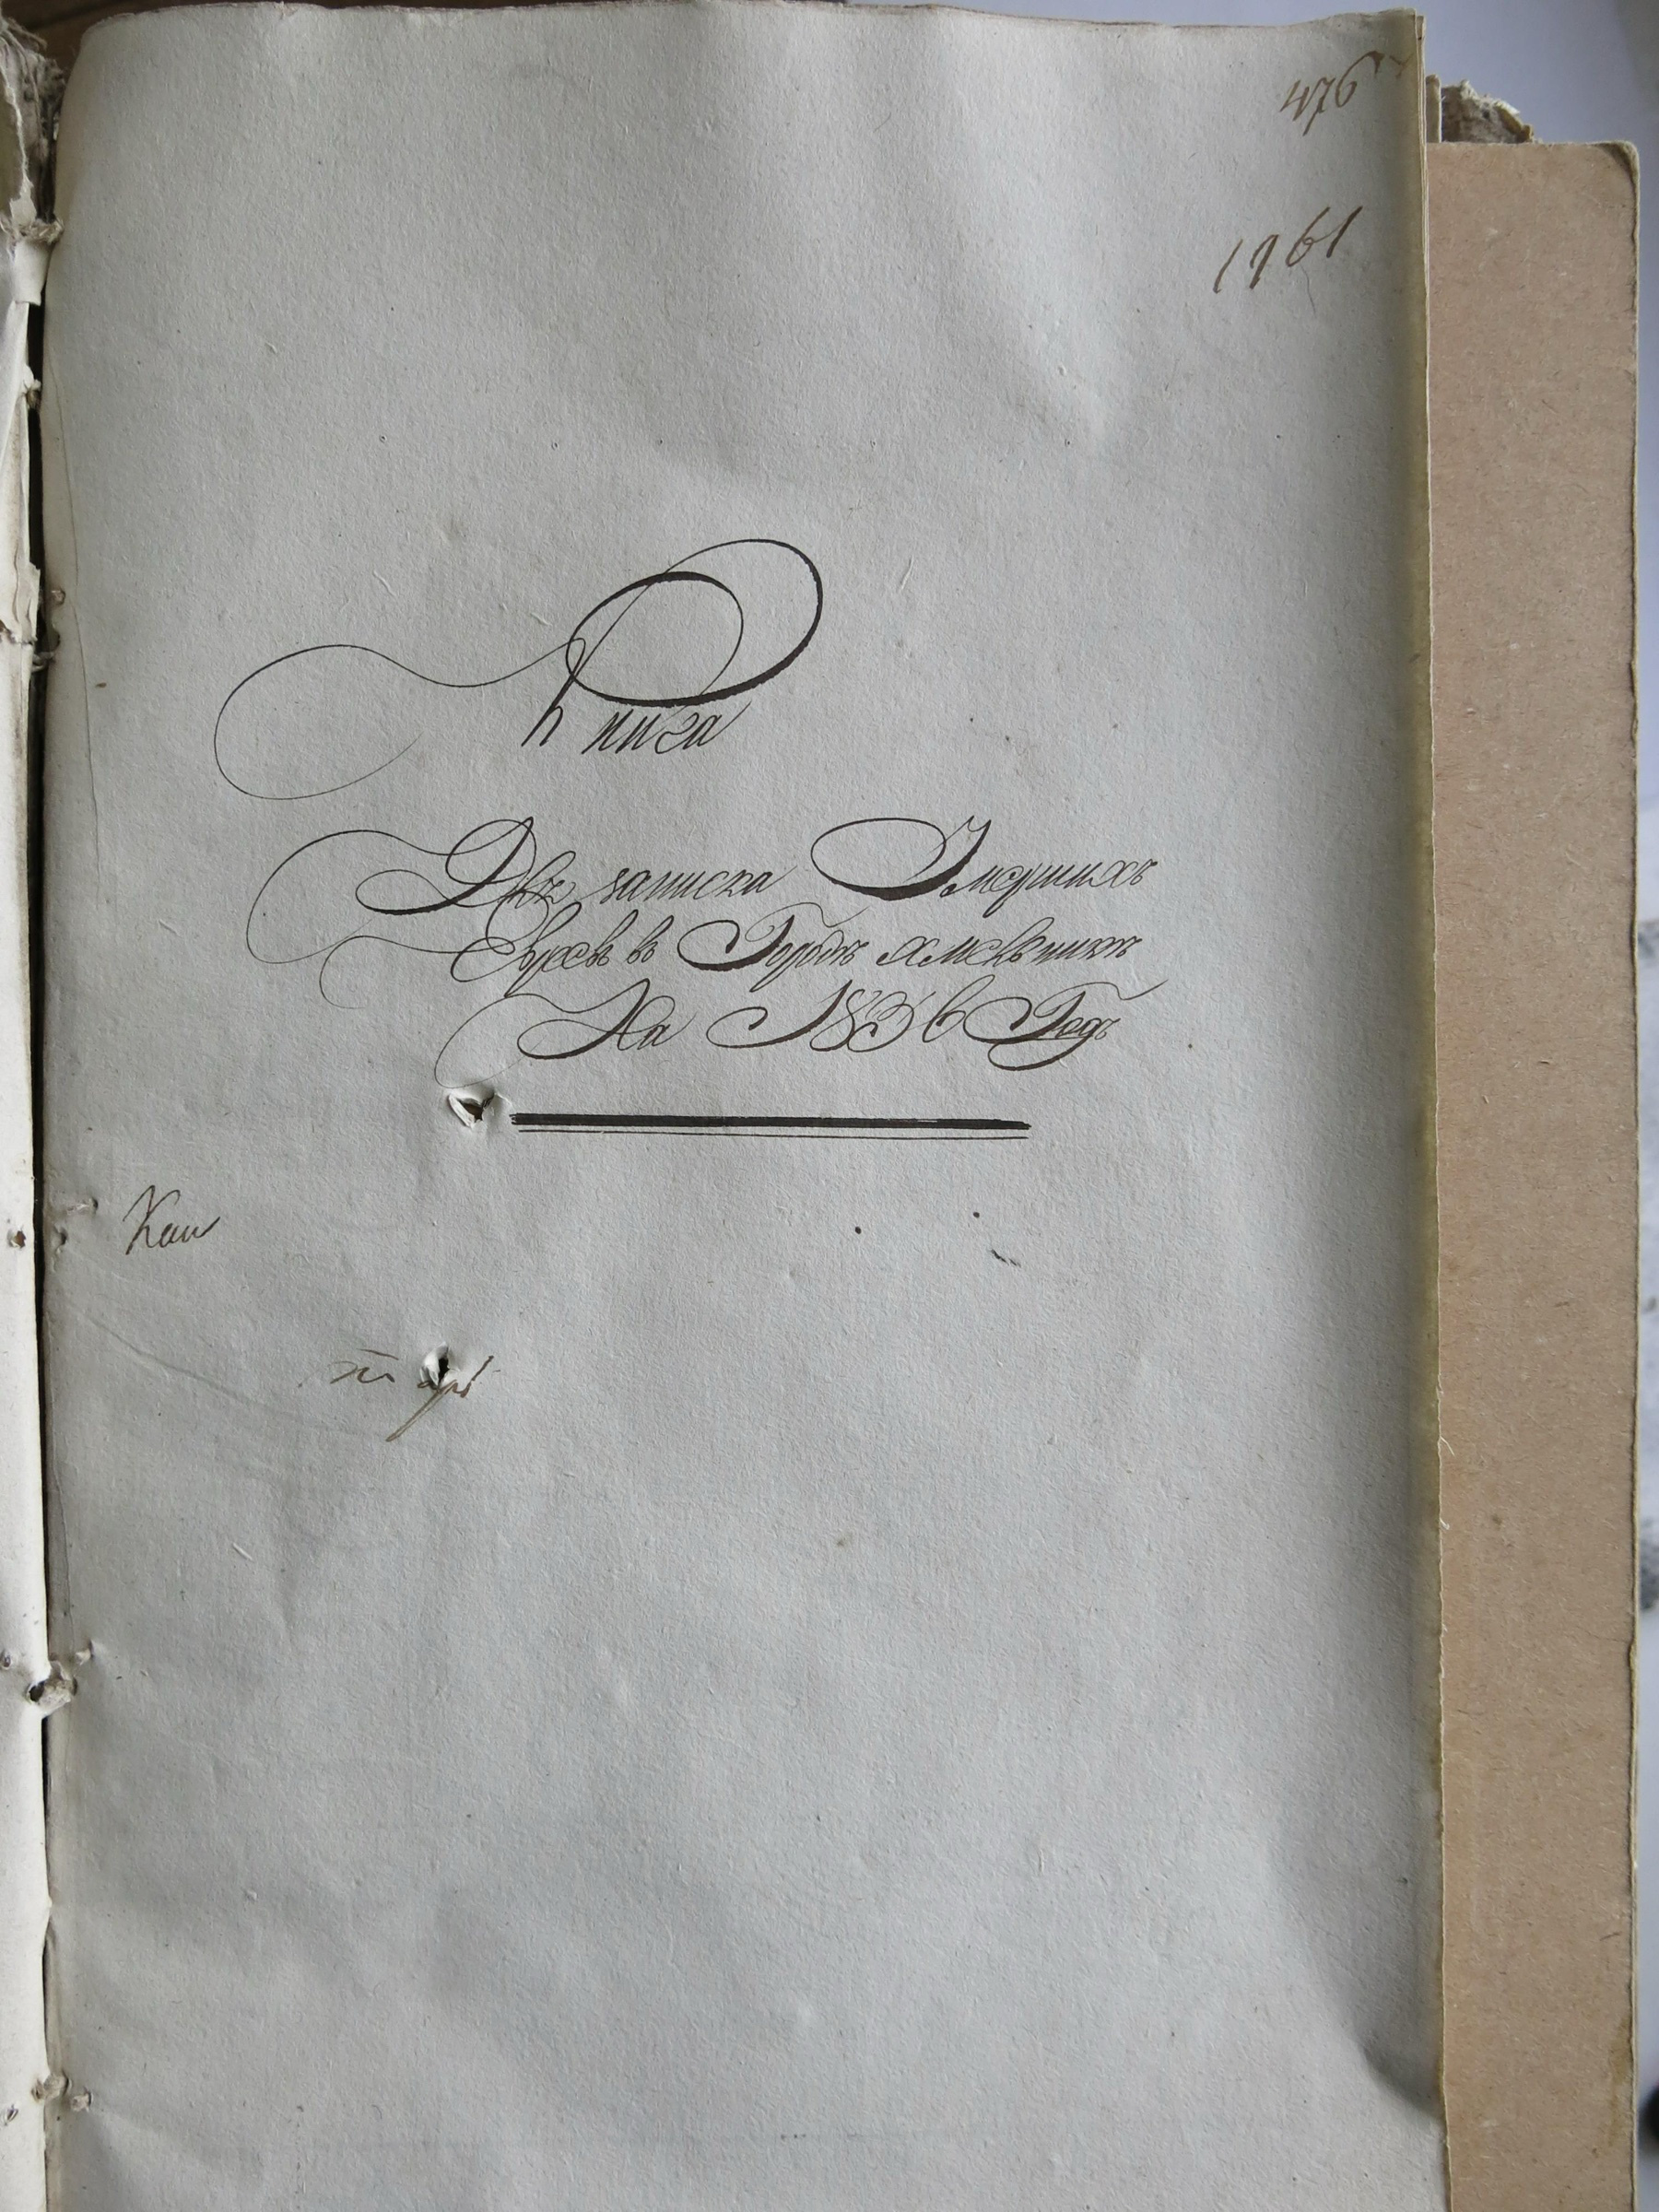 476
1961
Книга
Для записка Умерших
Евреев в Городе Хмельнике
На 1836 Годъ
Кан